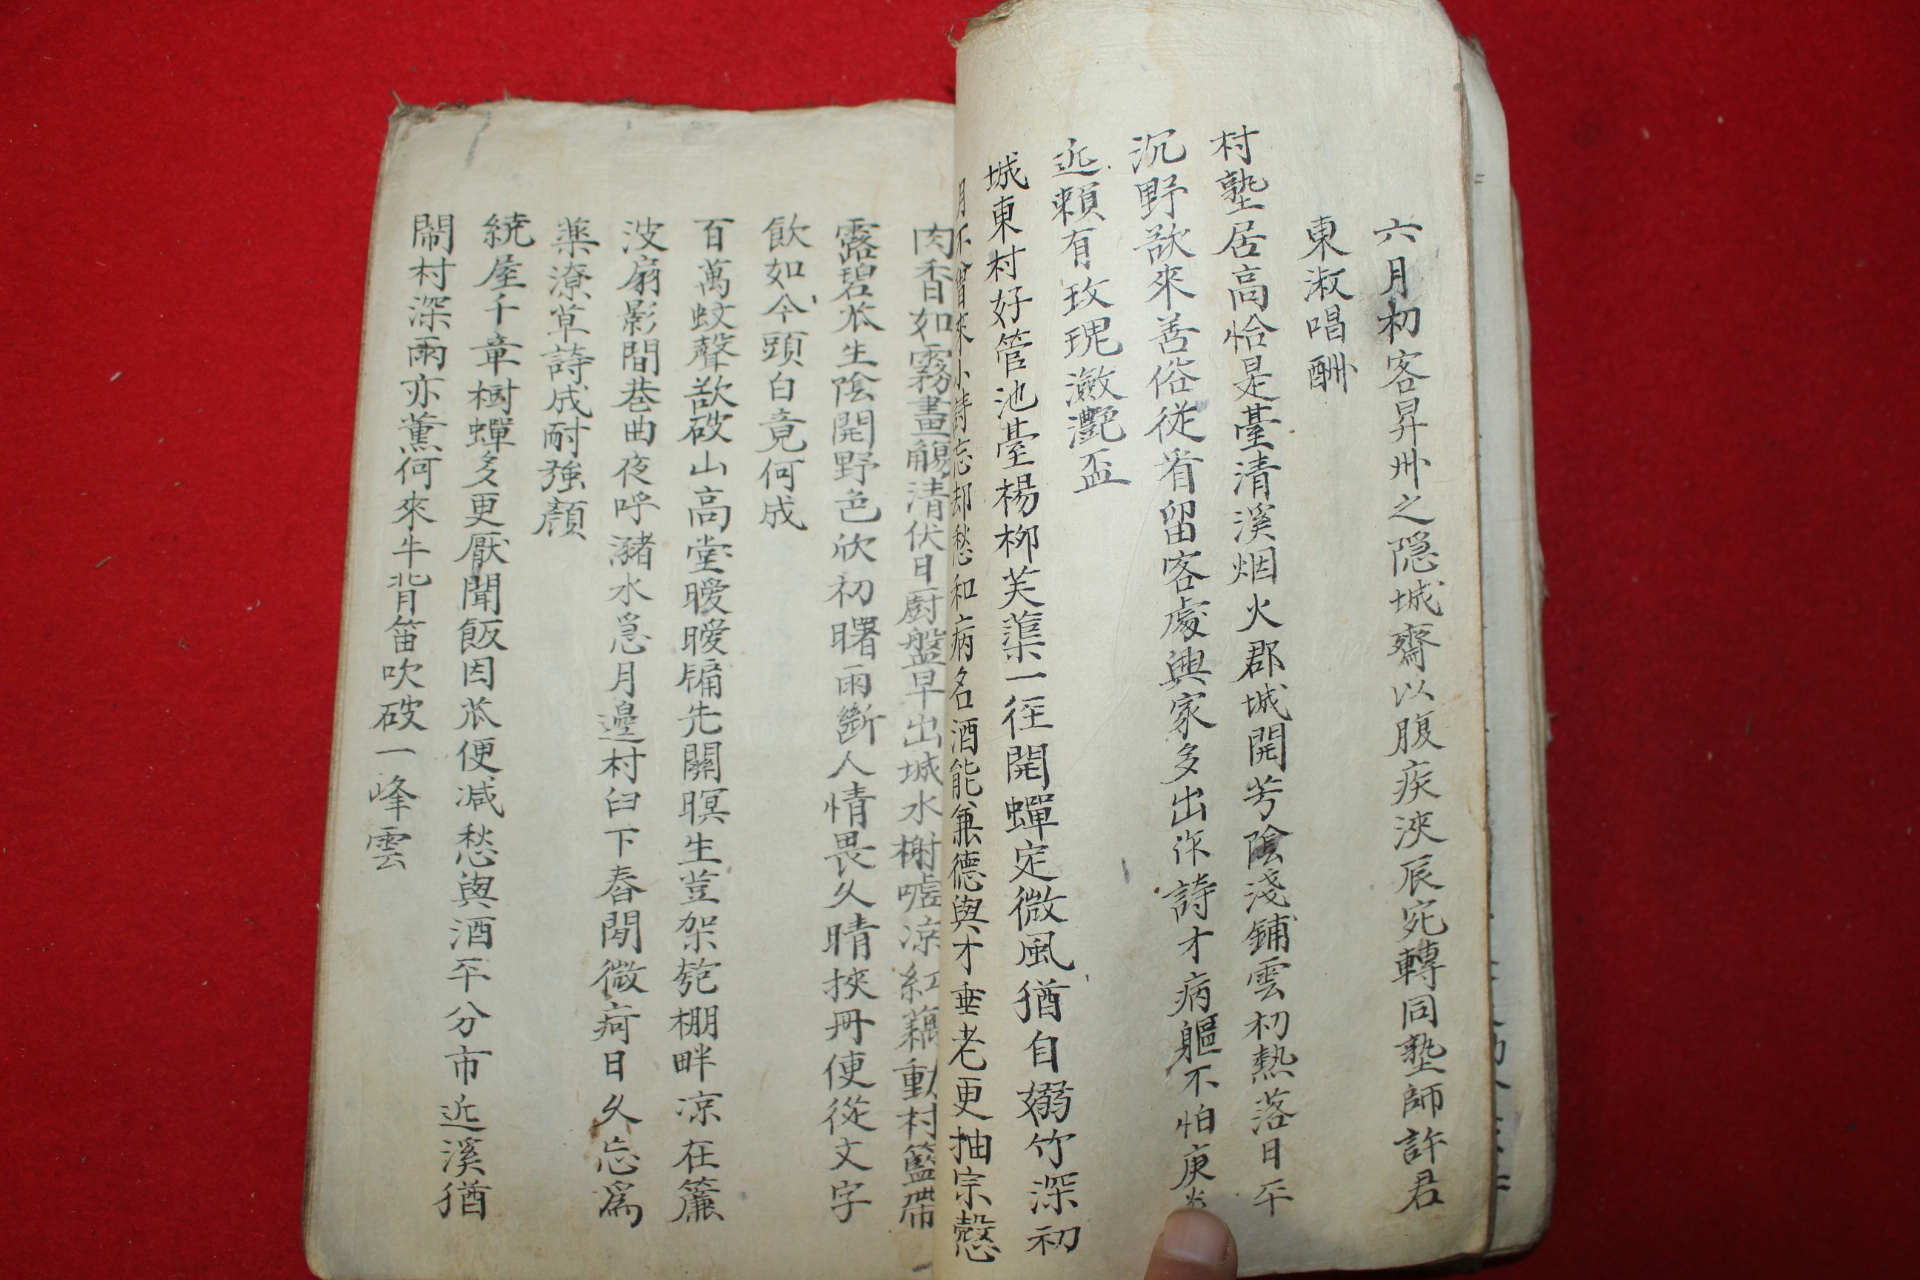 六月初客昇州之隱城齋以腹疾浹辰宛轉同塾師許君
東淑唱酬
村塾居高恰是臺清溪烟火郡城開芳陰淺鋪雲初熱落日平
沉野歆來善俗從看留客處興家多出作詩才病軀不怕庚炎
近賴有玫瑰瀲灔盃
城東村好管池臺楊柳芙蕖一徑開蟬定微風猶自嫋竹深初
月不曾來小詩忘却愁和病名酒能兼德與才垂老更抽宗慤
肉香如霧晝觴清伏日廚盤早出城水榭嘘凉紅藕動村籃帶
露碧苽生陰開野色欣初曙雨斷人情畏久晴挾冊便從文字
飲如今頭白竟何成
百萬蚊聲欲破山高堂曖曖牖先關暝生荳架匏棚畔凉在簾
波扇影間巷曲夜呼瀦水急月邊村臼下舂閒微痾日久忘爲
藥潦草詩成耐強顏
繞屋千章樹蟬多更厭聞飯因苽便减愁與酒平分市近溪猶
鬧村深雨亦薰何來牛背笛吹破一峰雲